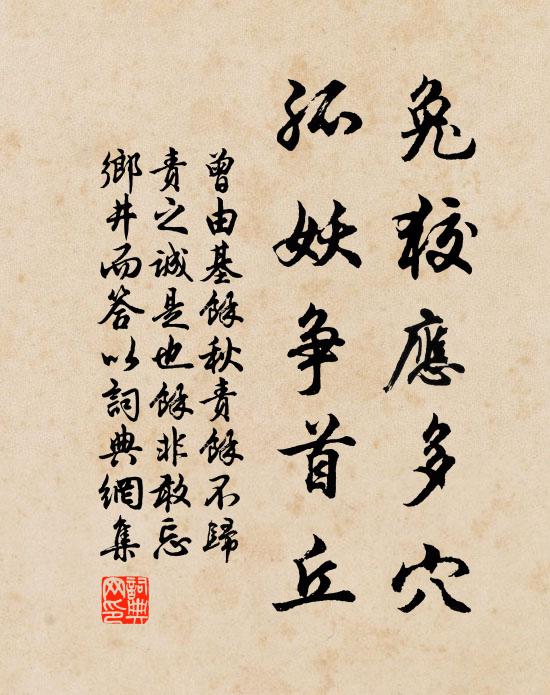 兔狡應多穴
狐妖争首丘
曾由基餘秋責餘不歸
責之誠是也餘非敢忘
鄉井而答以詞典網集
詞典网印